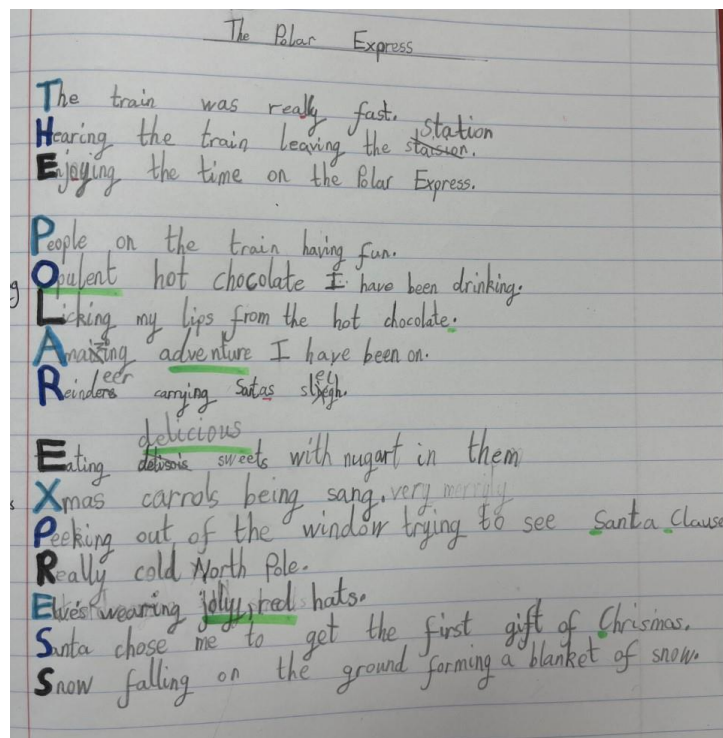 The Polar Express
The train was really fast.
station
Hearing the train leaving the starsion.
Enjoying the time on the Polar Express.
People on the train having fun.
Opulent hot chocolate I have been drinking.
Licking my lips from the hot chocolate.
Amaizing adventure I have been on.
Reindeer carrying Santas sleigh.
delicious
Eating delisois sweets with nugart in them
Xmas carrols being sang. very merrily
Peeking out of the window trying to see Santa Clause
Really cold North Pole.
Elves wearing jolly, red hats.
Santa chose me to get the first gift of Chrismas.
Snow falling on the ground forming a blanket of snow.